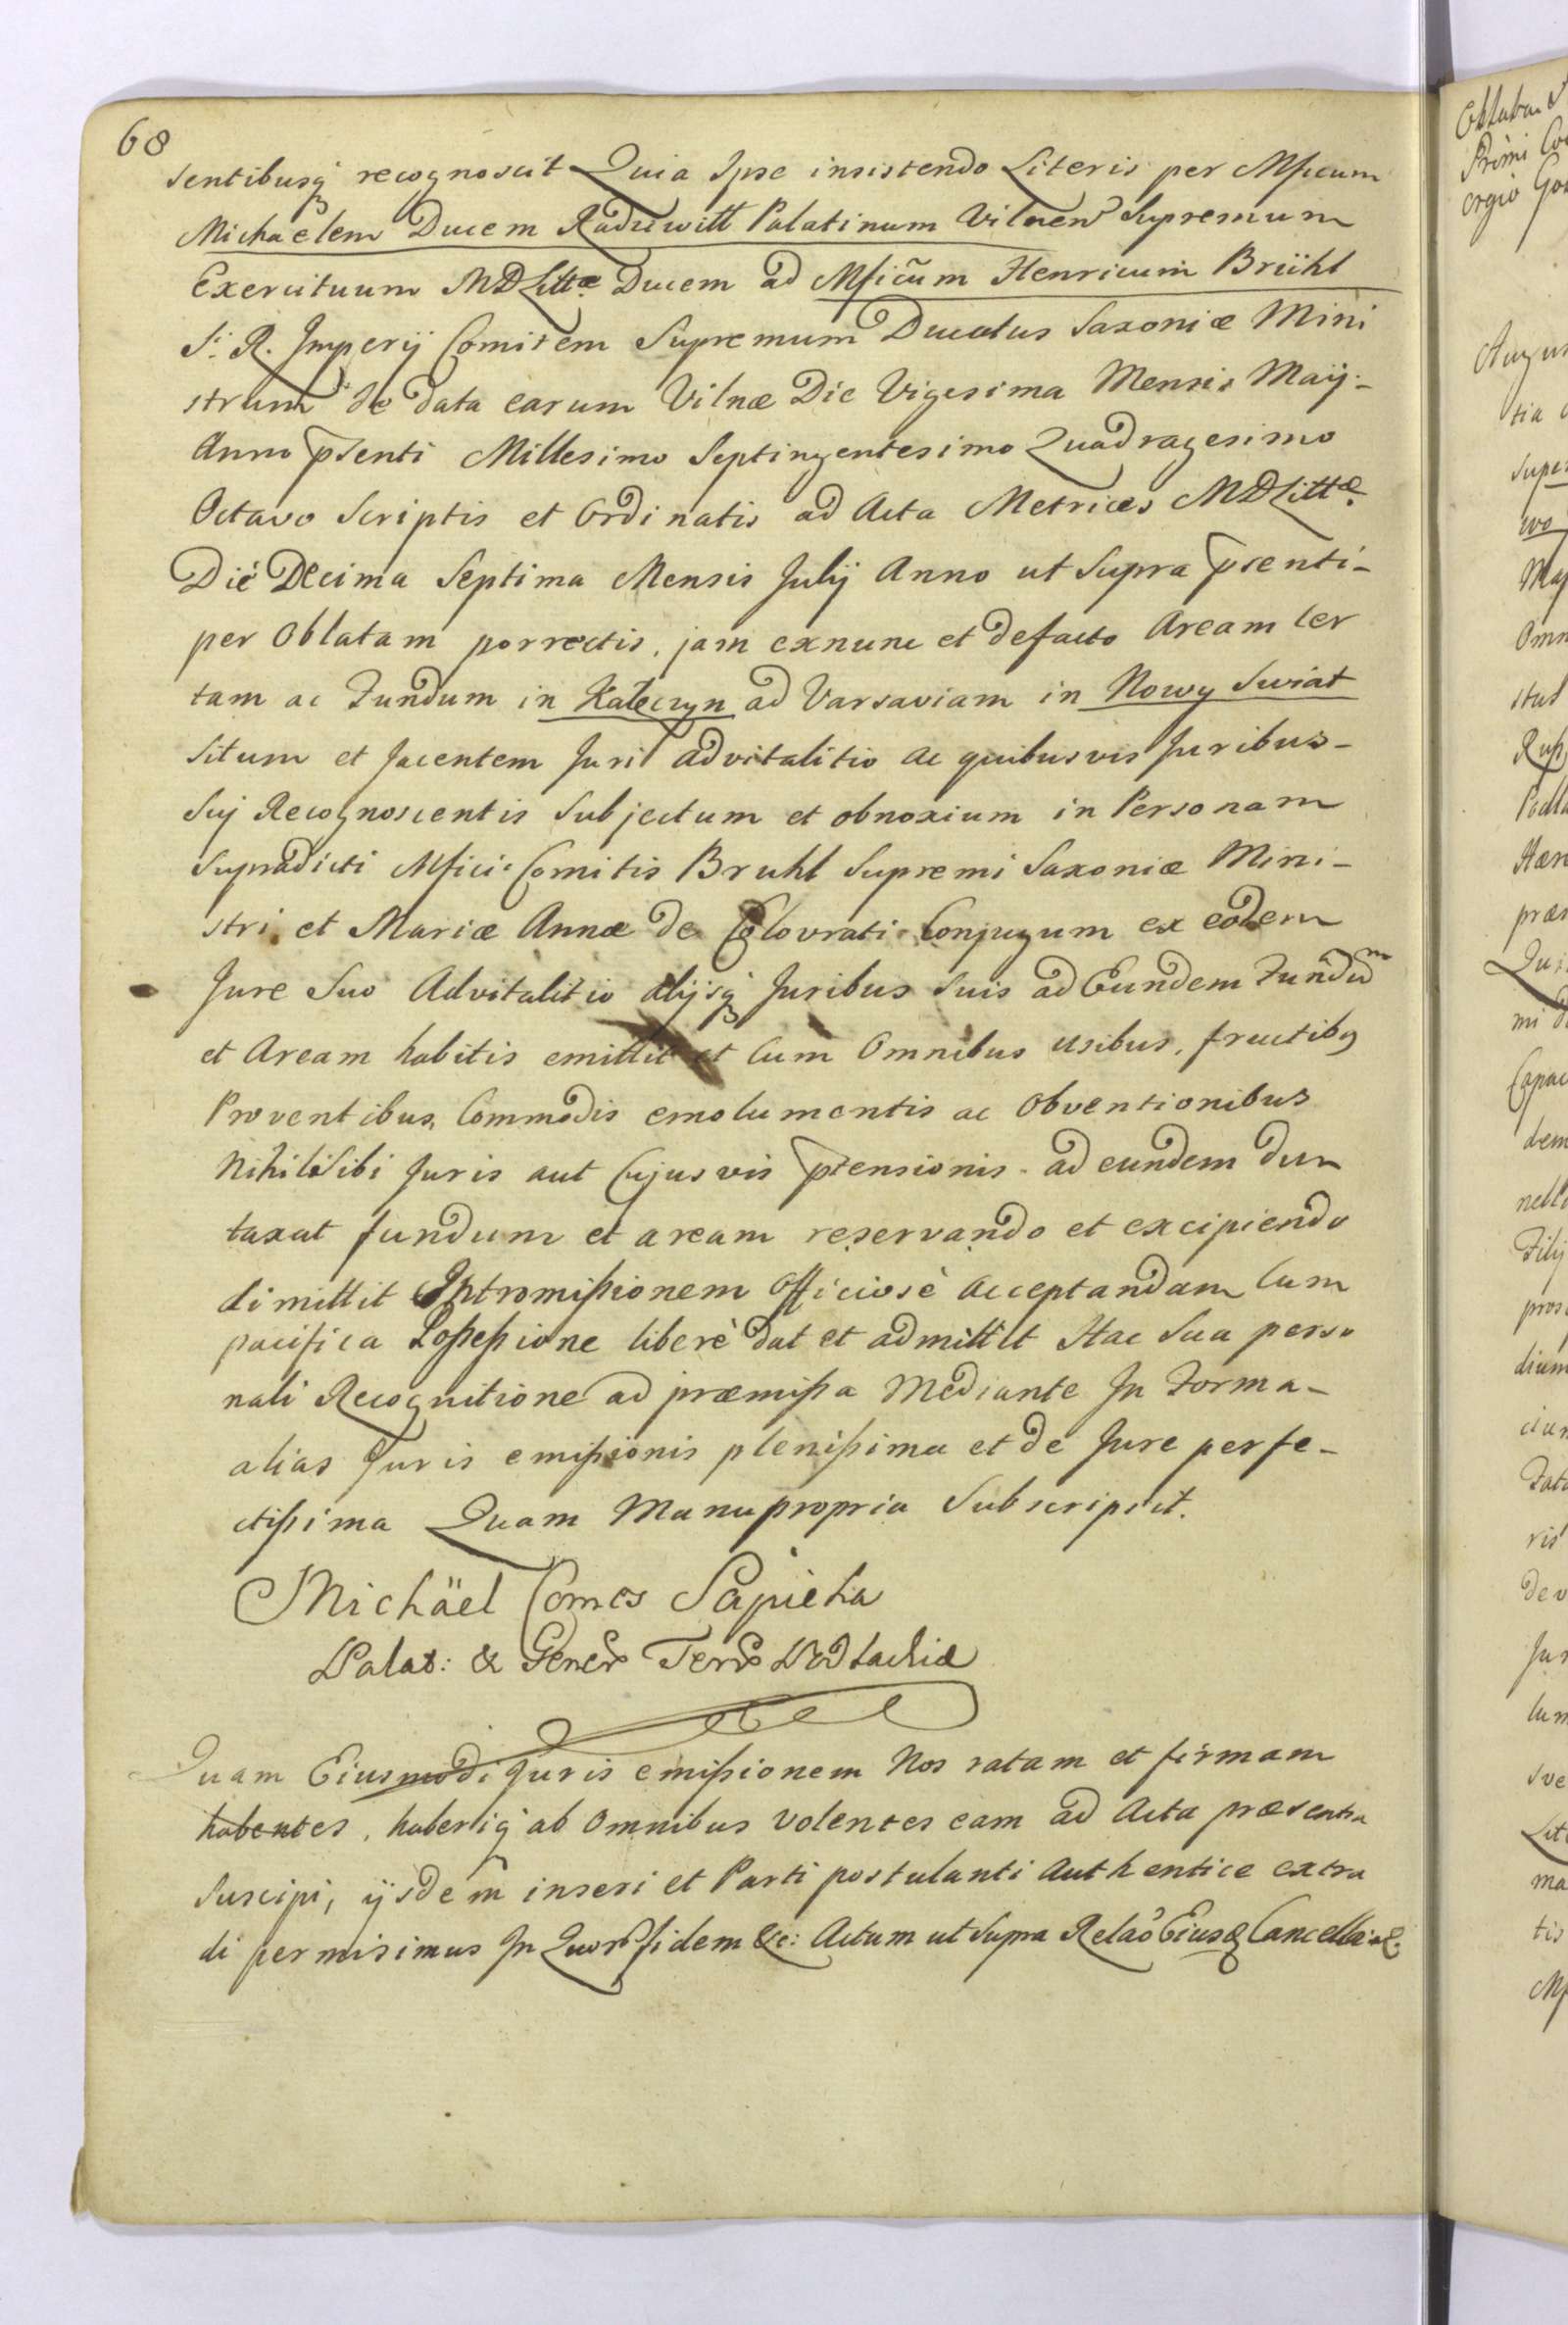 68
sentibusq recognoscit Quia Ipse insistendo Literis per Mficum
Michaëlem Ducem Radziwill Palatinum Vilnen Supremum
Exercituum MDLittæ Ducem ad Mficũm Henricum Brühl
S. R. Imperij Comitem Supremum Ducatus Saxoniæ Mini
strum de data earum Vilnæ Die Vigesima Mensis Maij.-
Anno pñsenti Millesimo Septingentesimo Quadragesimo
Octavo Scriptis et Ordinatis ad Acta Metrices MDLittæ.
Die Decima Septima Mensis Julij Anno ut Supra psenti-
per Oblatam porrectis, jam exnunc et defacto Aream cer
tam ac Fundum in Kałęczyn ad Varsaviam in Nowy Swiat
Situm et Jacentem Juri advitalitio ac quibusvis Juribus-
Sui Recognoscentis Subjectum et obnoxium in Personam
Supradicti Mfici Comitis Bruhl Supremi Saxoniæ Mini-
stri et Mariæ Annæ de Colovrati Conjugum ex eodem
Jure Suo Advitalitio alijsq Juribus Suis ad Eundem Fundum
et Aream habitis emittit et Cum Omnibus usibus, fructibq
Proventibus, Commodis emolumentis ac Obventionibus
Nihil Sibi Juris aut Cujusvis ptensionis ad eundem dun
taxat fundum et aream reservando et excipiendo
dimittit Intromissionem Officiosè Acceptandam Cum
pacifica Possessione liberè dat et admittit Hac Sua perso
nali Recognitione ad præmissa Mediante In Forma-
alias Juris emissionis plenissima et de Jure perfe-
ctissima Quam Manu propria Subscripsit.
Michäel Comes Sapieha
Palat: & Gener Terr Podlachiæ
Quam Eiusmodi Juris emissionem Nos ratam et firmam
habentes, haberiq ab Omnibus Volentes eam ad Acta præsentia
Suscipi, ijsdem inseri et Parti postulanti Authentice extra
di permisimus In Quor fidem &c: Actum ut Supra Relao Eiusd Cancellarii.